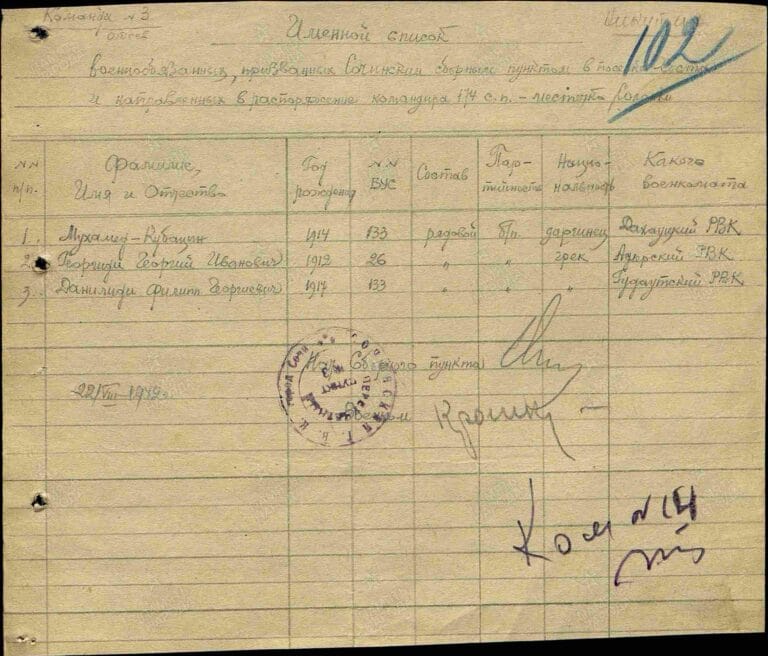 Команда №3
Именной список
102
военнообязанных, призванных Сочинским сборным пунктом в
и направленных в распоряжение командира 174 с.п. –
NN п/п.
Фамилие, Имя и Отчество
Год рождения
N.N ВУС
Состав
Пар-тийность
Нацио-нальность
Какого военкомата
1. Мухамед-Кубацин 1914 133 рядовой б/п. даргинец РВК
2. Георгиди Георгий Иванович 1912 26 " " грек Адлерский РВК
3. Данилиди Филипп Георгиевич 1917 133 " " " Гудаутский РВК
Нач. Сборного пункта
22/VIII 1942г.
город Сочи
пункт
№3
Ком №14